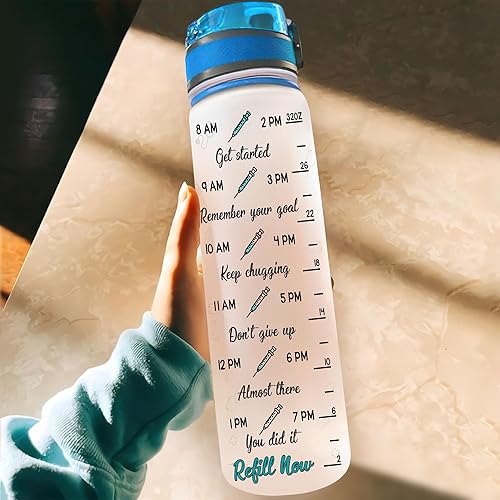 8 AM 2 PM 32OZ
Get started
26
9 AM 3 PM
Remember your goal
22
10 AM 4 PM
Keep chugging
18
11 AM 5 PM
14
Don't give up
12 PM 6 PM
10
Almost there
1 PM 7 PM 6
You did it
Refill Now 2